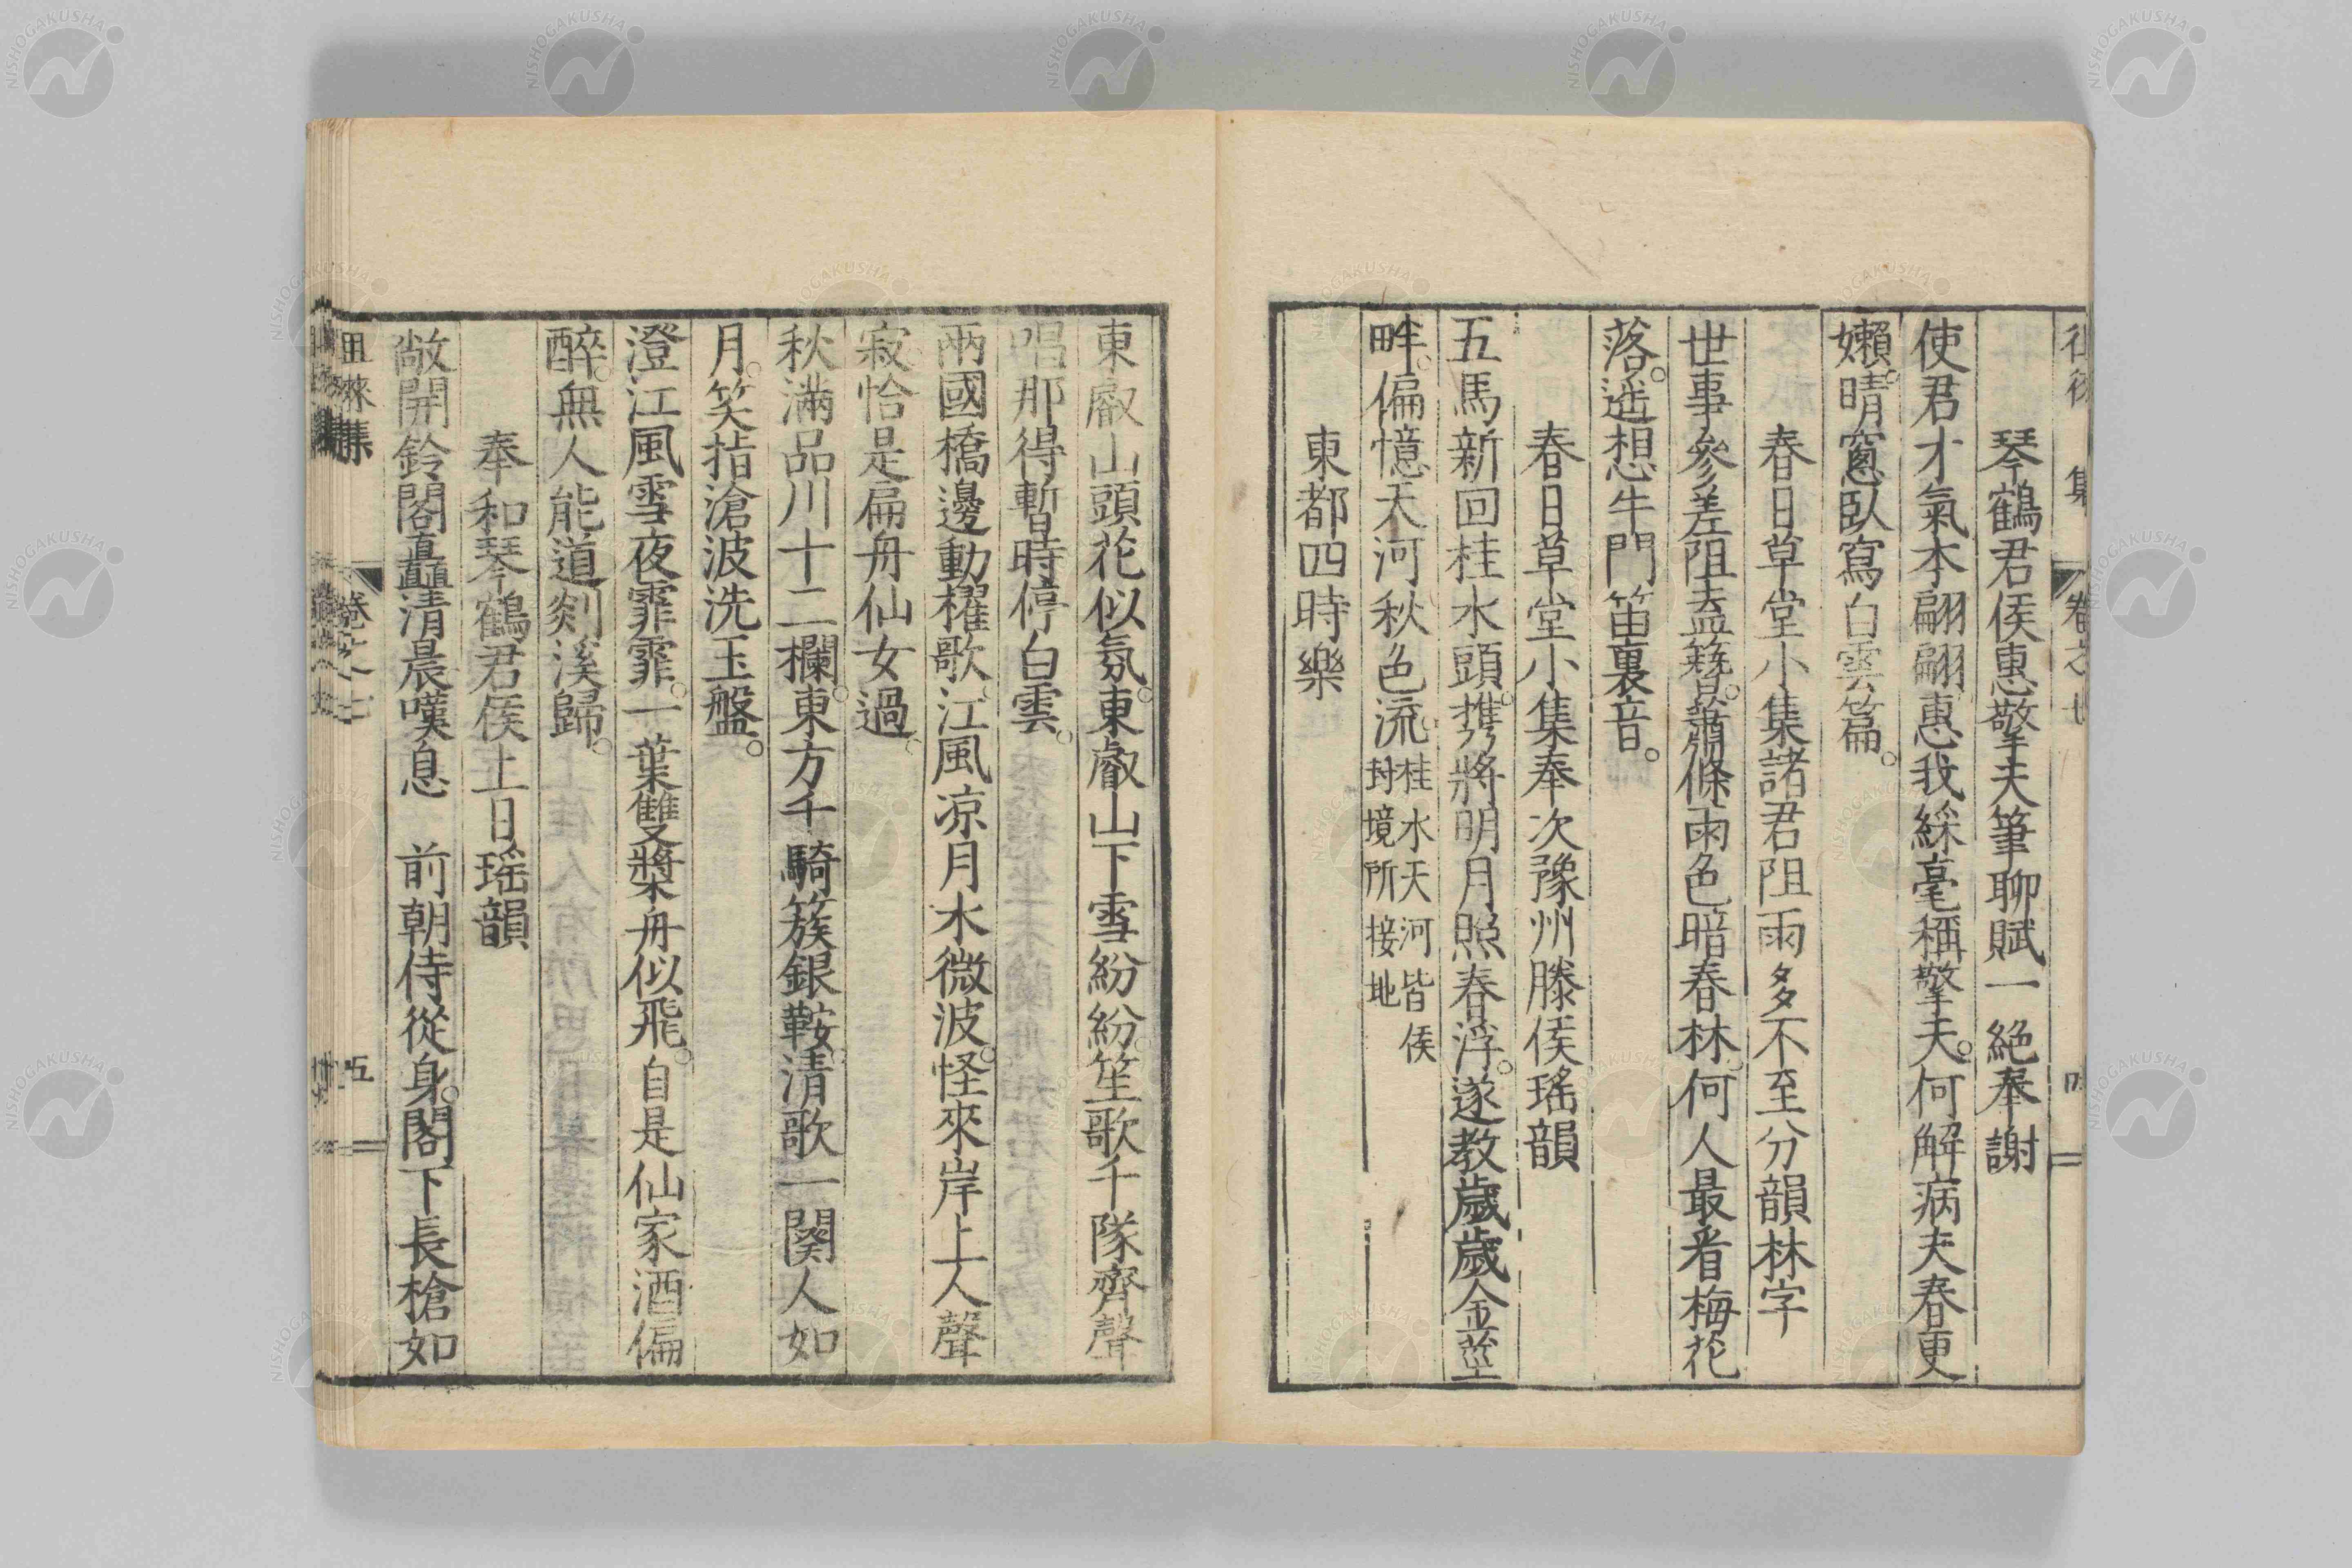 琴鶴君侯惠擎天筆聊賦一絶奉謝
使君才氣本翩翩惠我綵毫稱擎天。何解病夫春更
嬾。晴窻臥寫白雲篇。
春日草堂小集諸君阻雨多不至分韻林字
世事參差阻盍簪。蕭條雨色暗春林。何人最看梅花
落。遥想牛門笛裏音。
春日草堂小集奉次豫州滕侯瑤韻
五馬新回桂水頭。携將明月照春浮。遂教歲歲金莖
畔。偏憶天河秋色流。桂水天河皆侯
封境所接地
東都四時樂
東叡山頭花似氛。東叡山下雪紛紛。笙歌千隊齊聲
唱那得暫時停白雲。
兩國橋邊動櫂歌。江風凉月水微波。怪來岸上人聲
寂。恰是扁舟仙女過。
秋滿品川十二欄。東方千騎簇銀鞍。清歌一闋人如
月。笑指滄波洗玉盤。
澄江風雪夜霏霏。一葉雙槳舟似飛。自是仙家酒偏
醉。無人能道剡溪歸。
奉和琴鶴君侯上日瑤韻
敞開鈴閣矗清晨嘆息 前朝侍從身。閣下長槍如
徂徠集
NISHOGAKUSHA